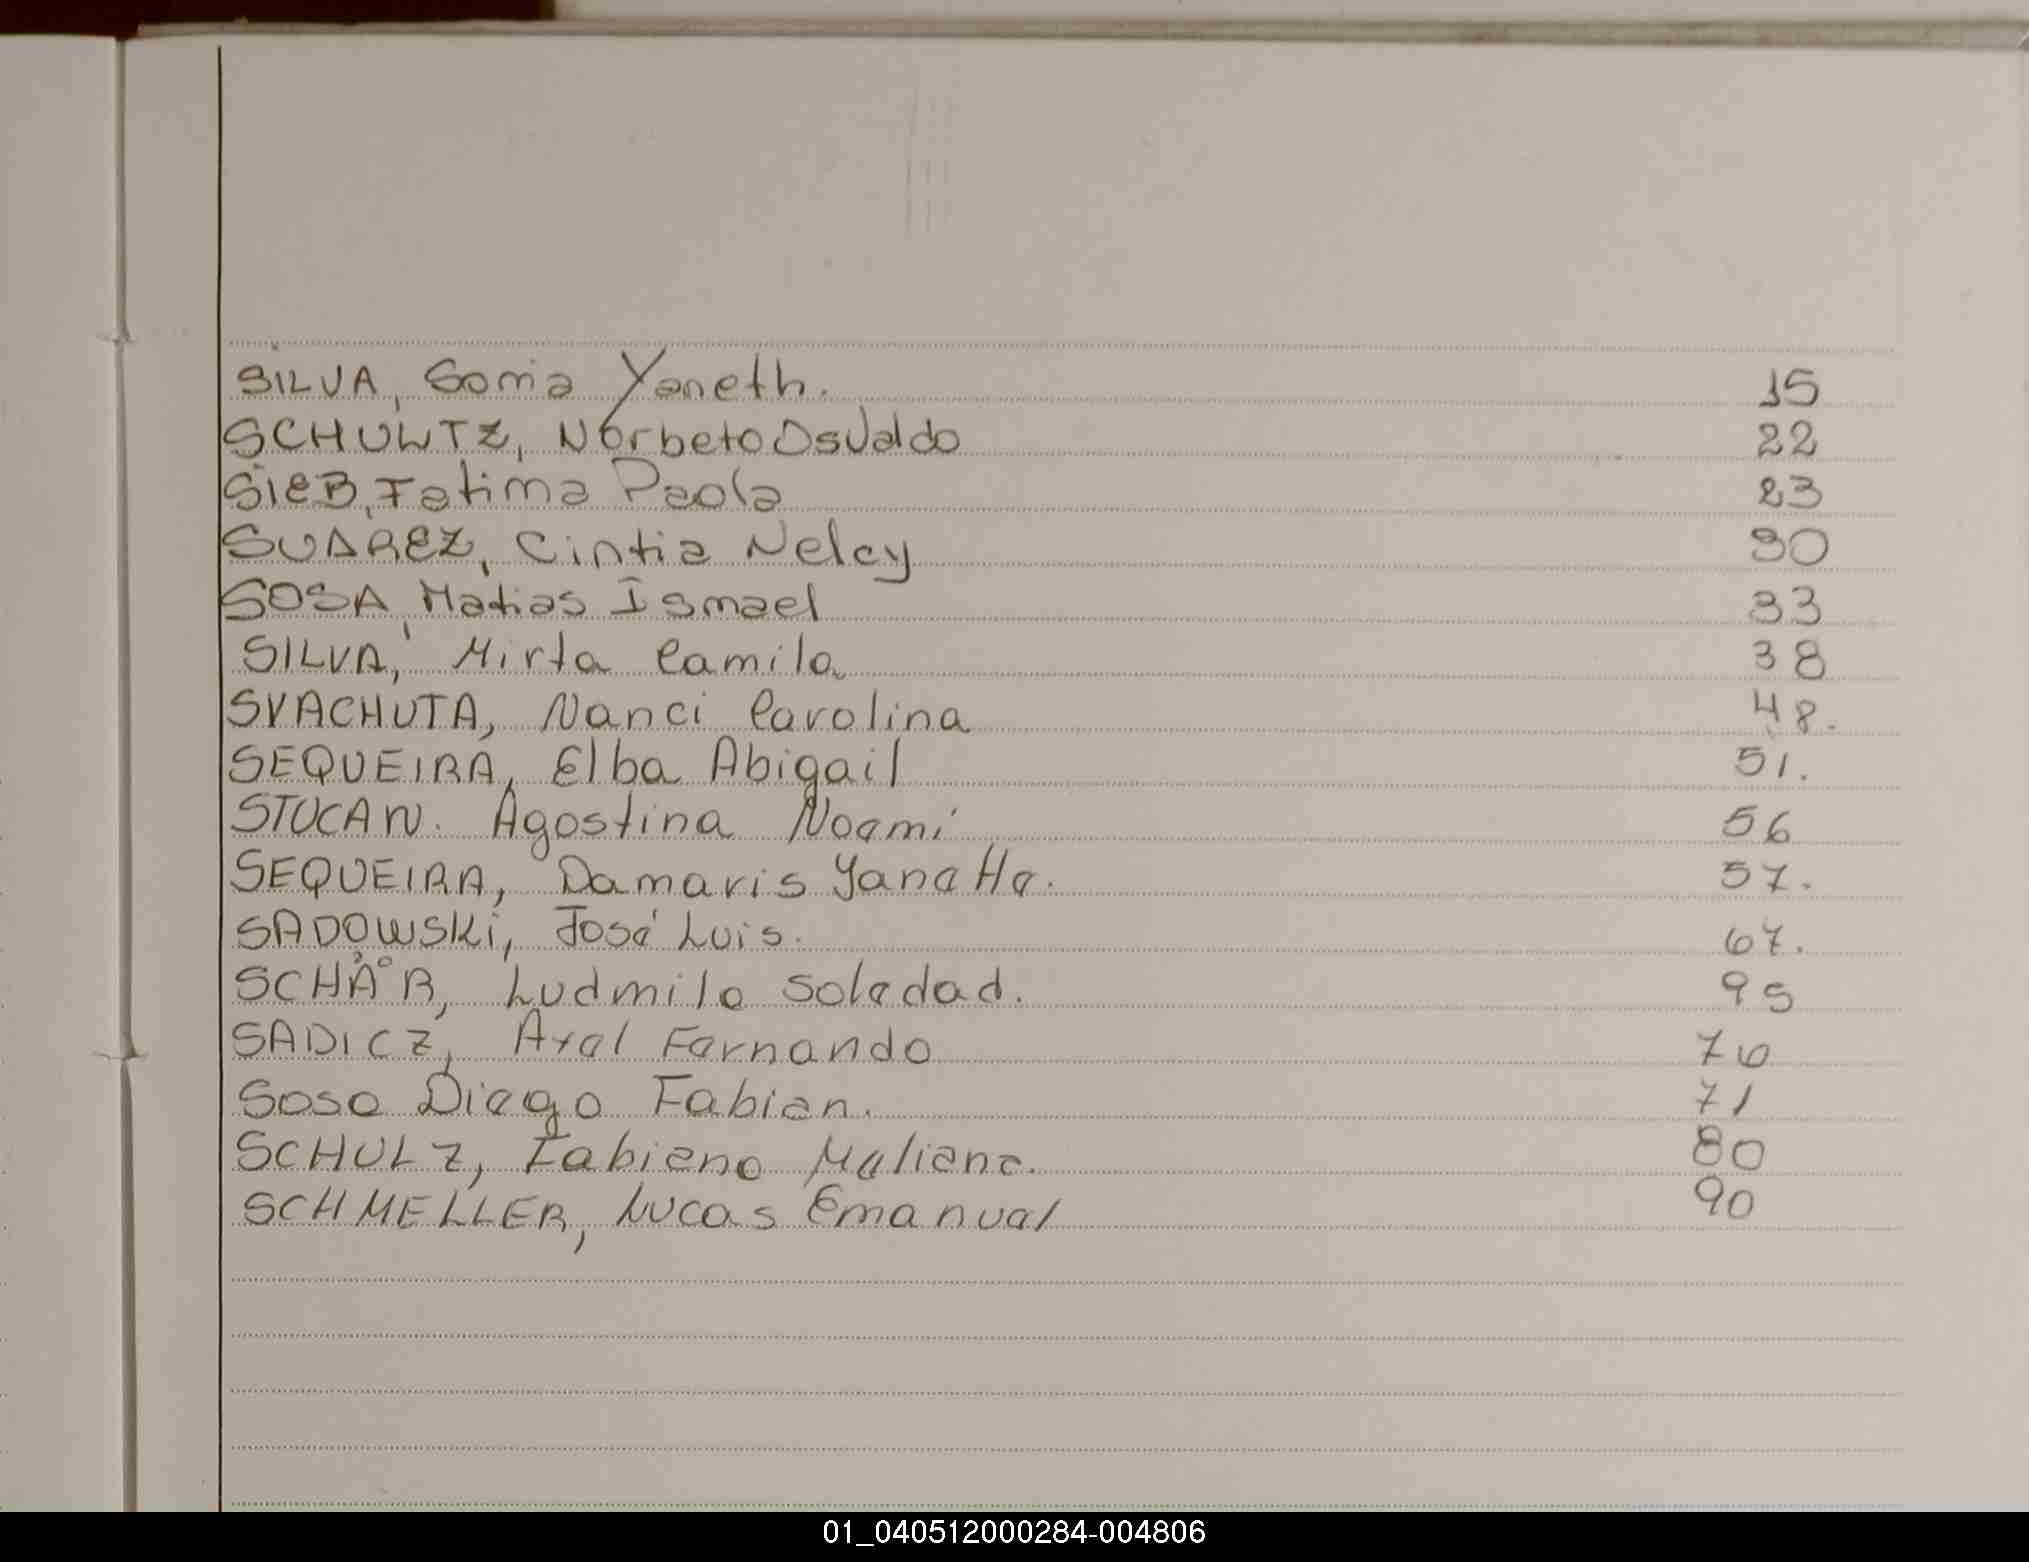 SILVA, Sonia Yaneth. 15
SCHULTZ, Norbeto Osvaldo 22
SIEB, Fatima Paola 23
SUAREZ, Cintia Nelcy 30
SOSA, Matias Ismael 33
SILVA, Mirta Camila 38
SVACHUTA, Nanci Carolina 48.
SEQUEIRA, Elba Abigail 51.
STUCAN. Agostina Noemi 56
SEQUEIRA, Damaris Yanette. 57.
SADOWSKi, José Luis. 67.
SCHÄR, Ludmila Soledad. 95
SADICZ, Axel Fernando 70
Sosa Diego Fabian. 71
SCHULZ, Fabiana Meliana. 80
SCHMELLER, Lucas Emanuel 90
01_040512000284-004806